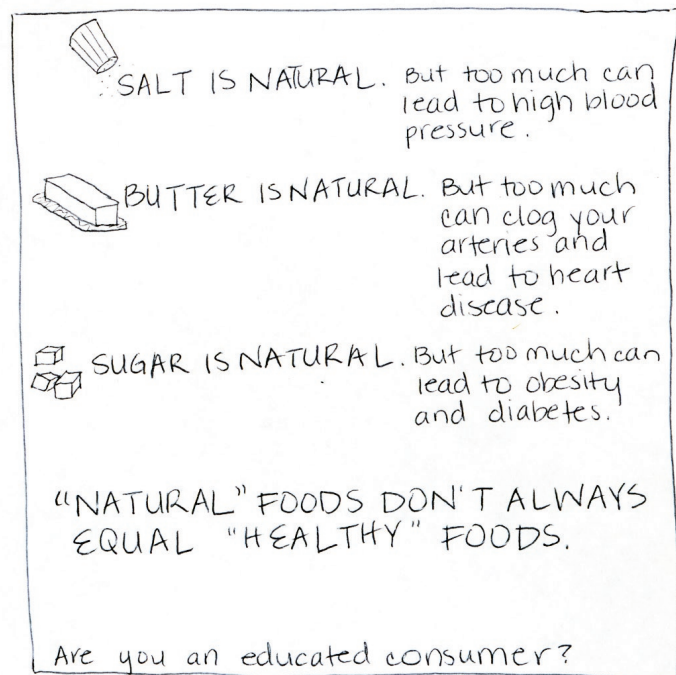 SALT IS NATURAL. But too much can
lead to high blood
pressure.
BUTTER IS NATURAL. But too much
can clog your
arteries and
lead to heart
disease.
SUGAR IS NATURAL. But too much can
lead to obesity
and diabetes.
"NATURAL" FOODS DON'T ALWAYS
EQUAL "HEALTHY" FOODS.
Are you an educated consumer?